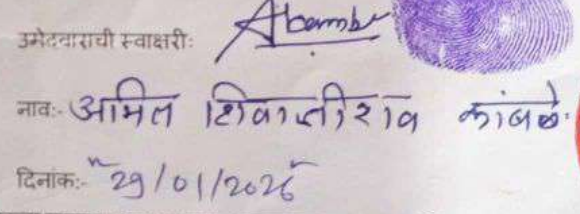 उमेदवाराची स्वाक्षरी:
नाव:- अमित शिवाजीराव कांबळे.
दिनांक:- "29/01/2026"